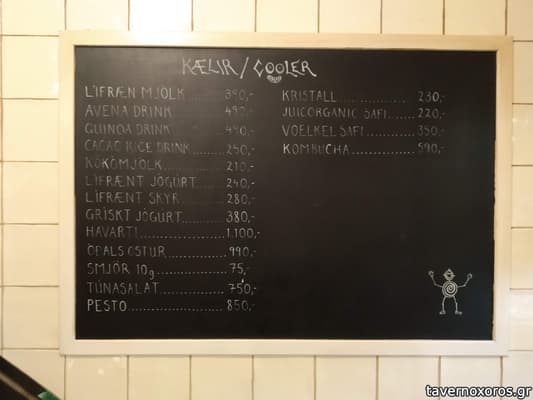 KÆLIR / COOLER
LÍFRÆN MJÓLK 390,-
AVENA DRINK 490,-
QUINOA DRINK 490,-
CACAO RICE DRINK......... 250,-
KÓKÓMJÓLK............. 210,-
LÍFRÆNT JÓGÚRT......... 240,-
LÍFRÆNT SKYR............ 280,-
GRÍSKT JÓGÚRT........... 380,-
HAVARTI................. 1.100,-
ÓÐALS OSTUR............ 990,-
SMJÖR 10g............... 75,-
TÚNASALAT.............. 750,-
PESTO................... 850,-
KRISTALL................ 230,-
JUICORGANIC SAFI...... 220,-
VOELKEL SAFI............ 350,-
KOMBUCHA............... 590,-
tavernoxoros.gr